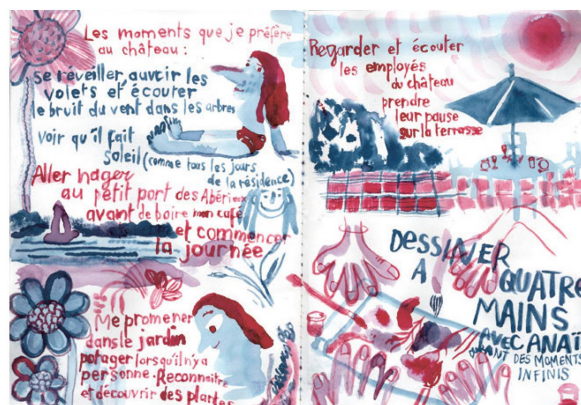 Les moments que je préfère
au château :
se réveiller, ouvrir les
volets et écouter
le bruit du vent dans les arbres
voir qu'il fait
soleil (comme tous les jours
de la résidence)
Aller nager
au petit port des
avant de boire mon café
et commencer
la journée
Me promener
dans le jardin
potager lorsqu'il n'y a
personne. Reconnaitre
et découvrir des plantes
Regarder et écouter
les employés
du château
prendre
leur pause
sur la terrasse
DESSINER
A QUATRE
MAINS
AVEC ANAÏ
DURANT DES MOMENTS
INFINIS